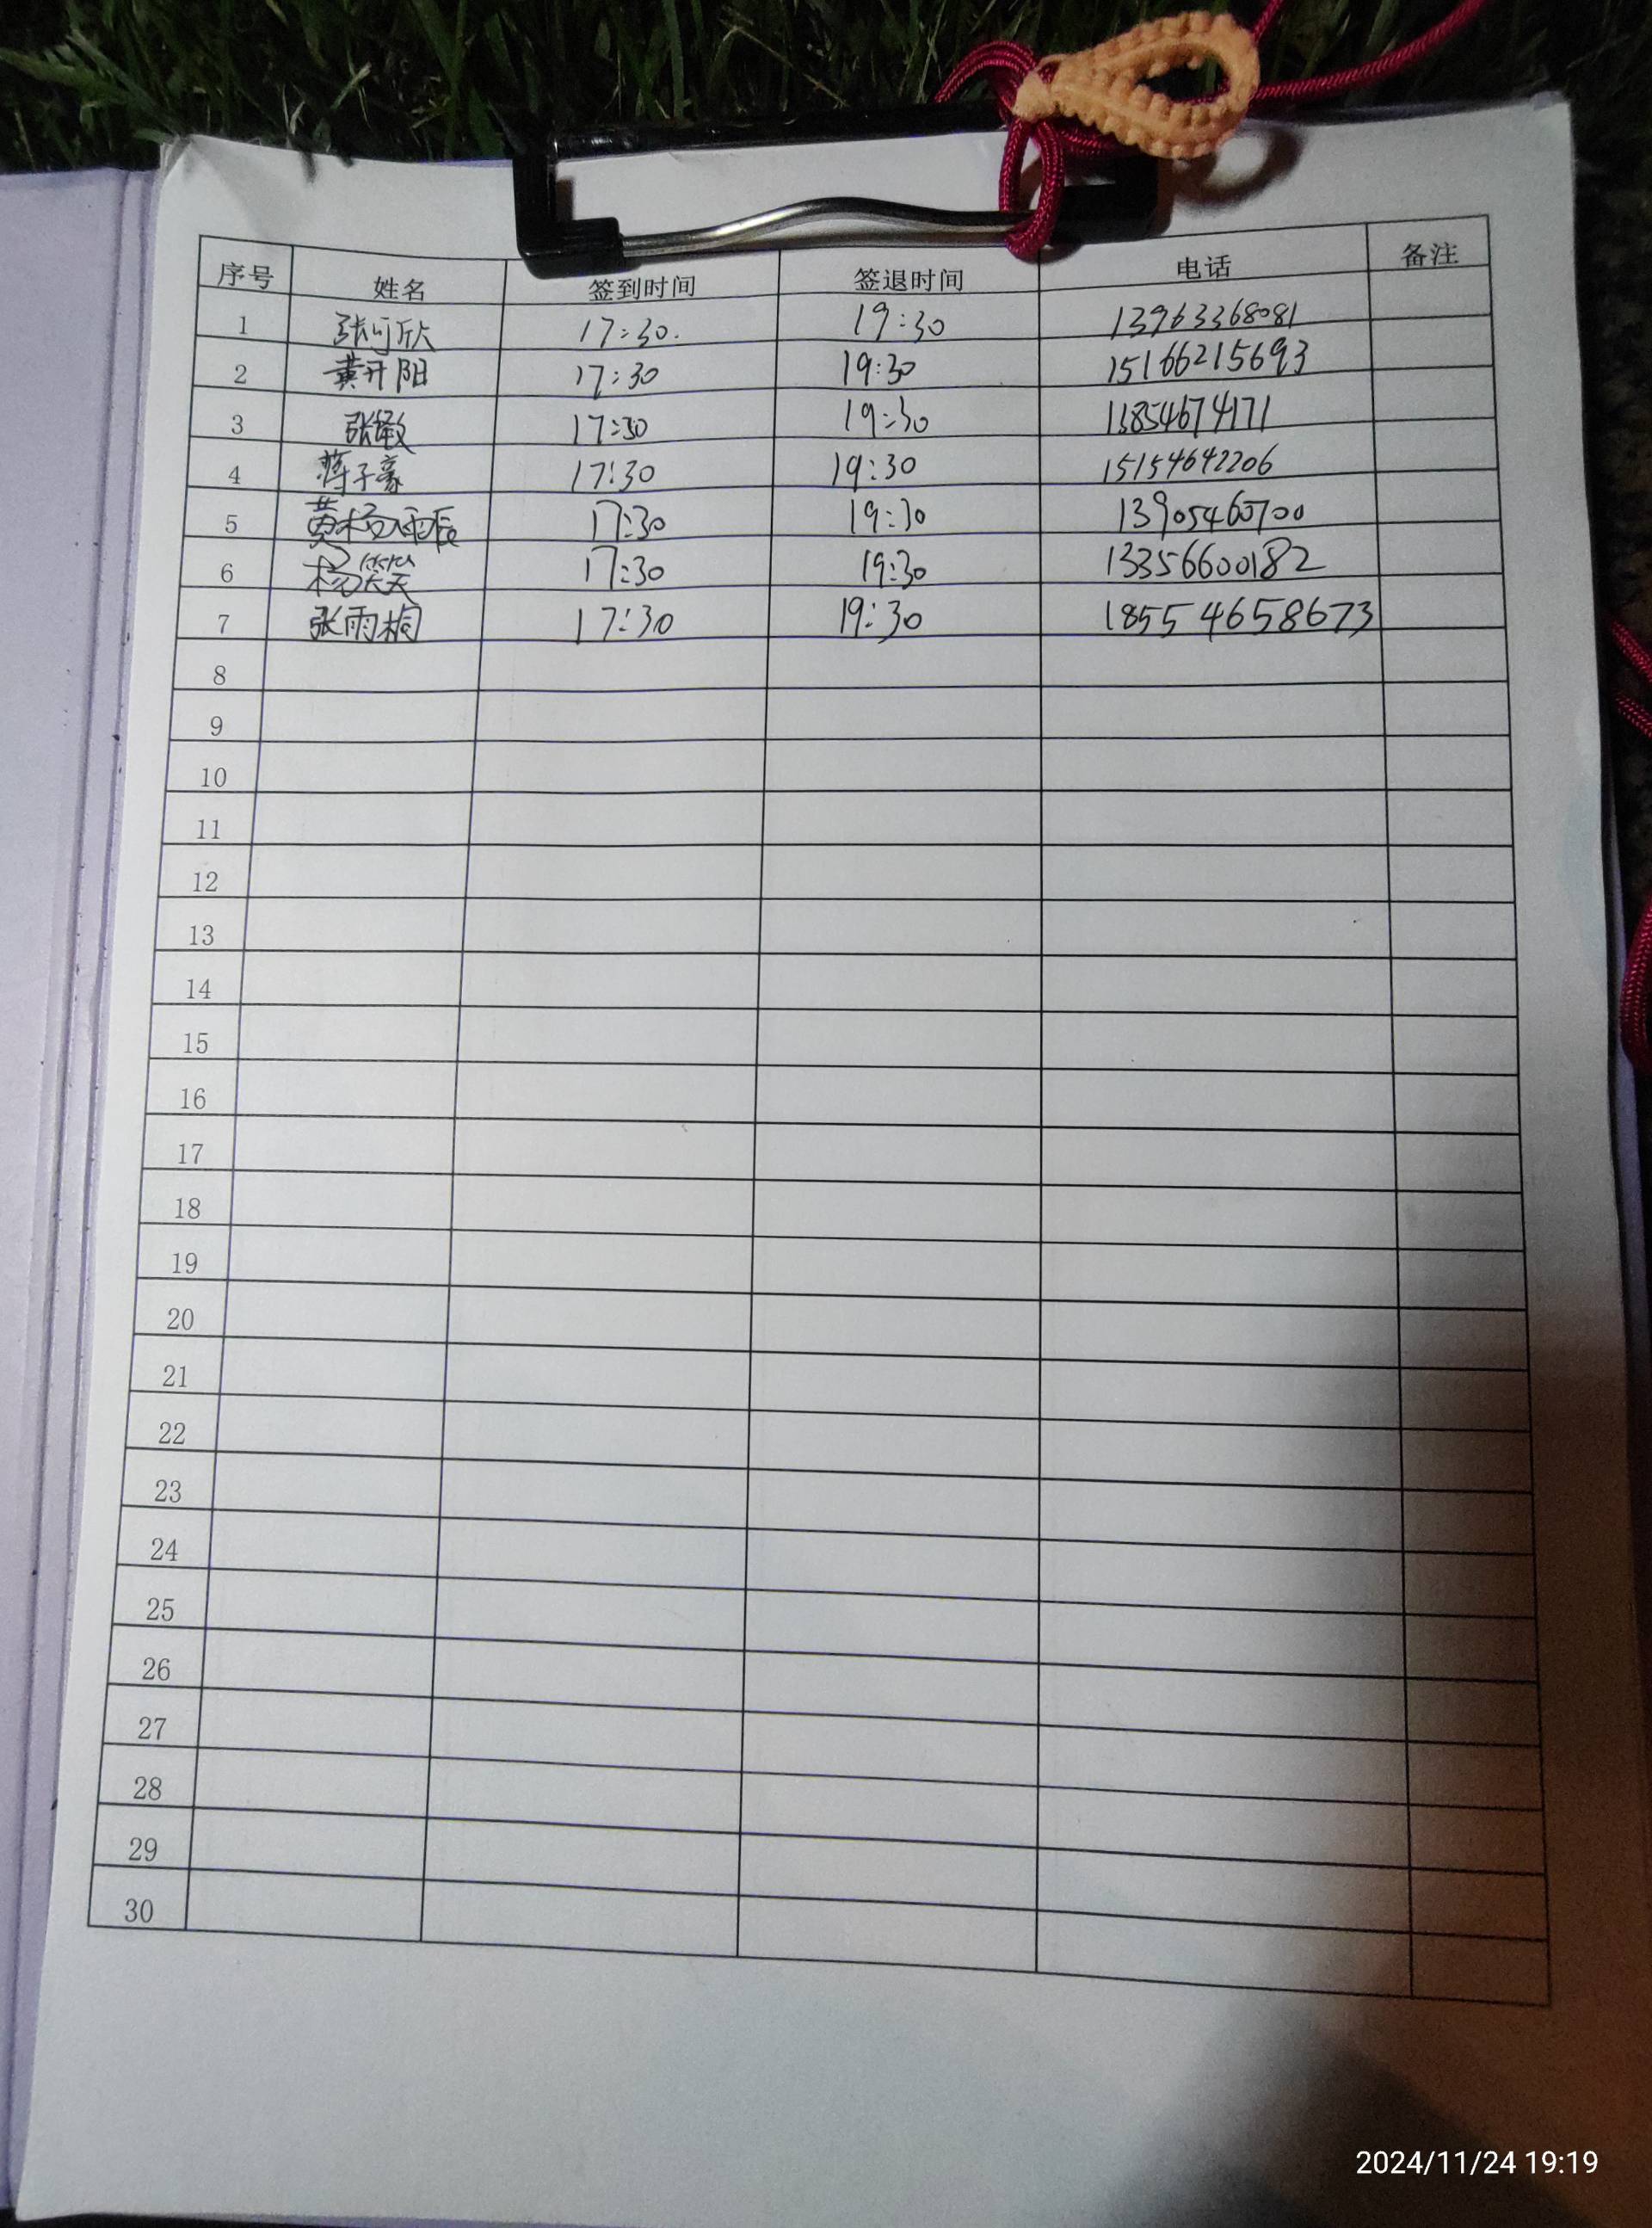 序号 姓名 签到时间 签退时间 电话 备注
1 张可欣 17:30. 19:30 13963368081
2 黄开阳 17:30 19:30 15166215693
3 张敏 17:30 19:30 11854674171
4 蒋子豪 17:30 19:30 15154642206
5 黄杨雨辰 17:30 19:30 13905460700
6 杨笑天 17:30 19:30 13356600182
7 张雨桐 17:30 19:30 18554658673
8
9
10
11
12
13
14
15
16
17
18
19
20
21
22
23
24
25
26
27
28
29
30
2024/11/24 19:19